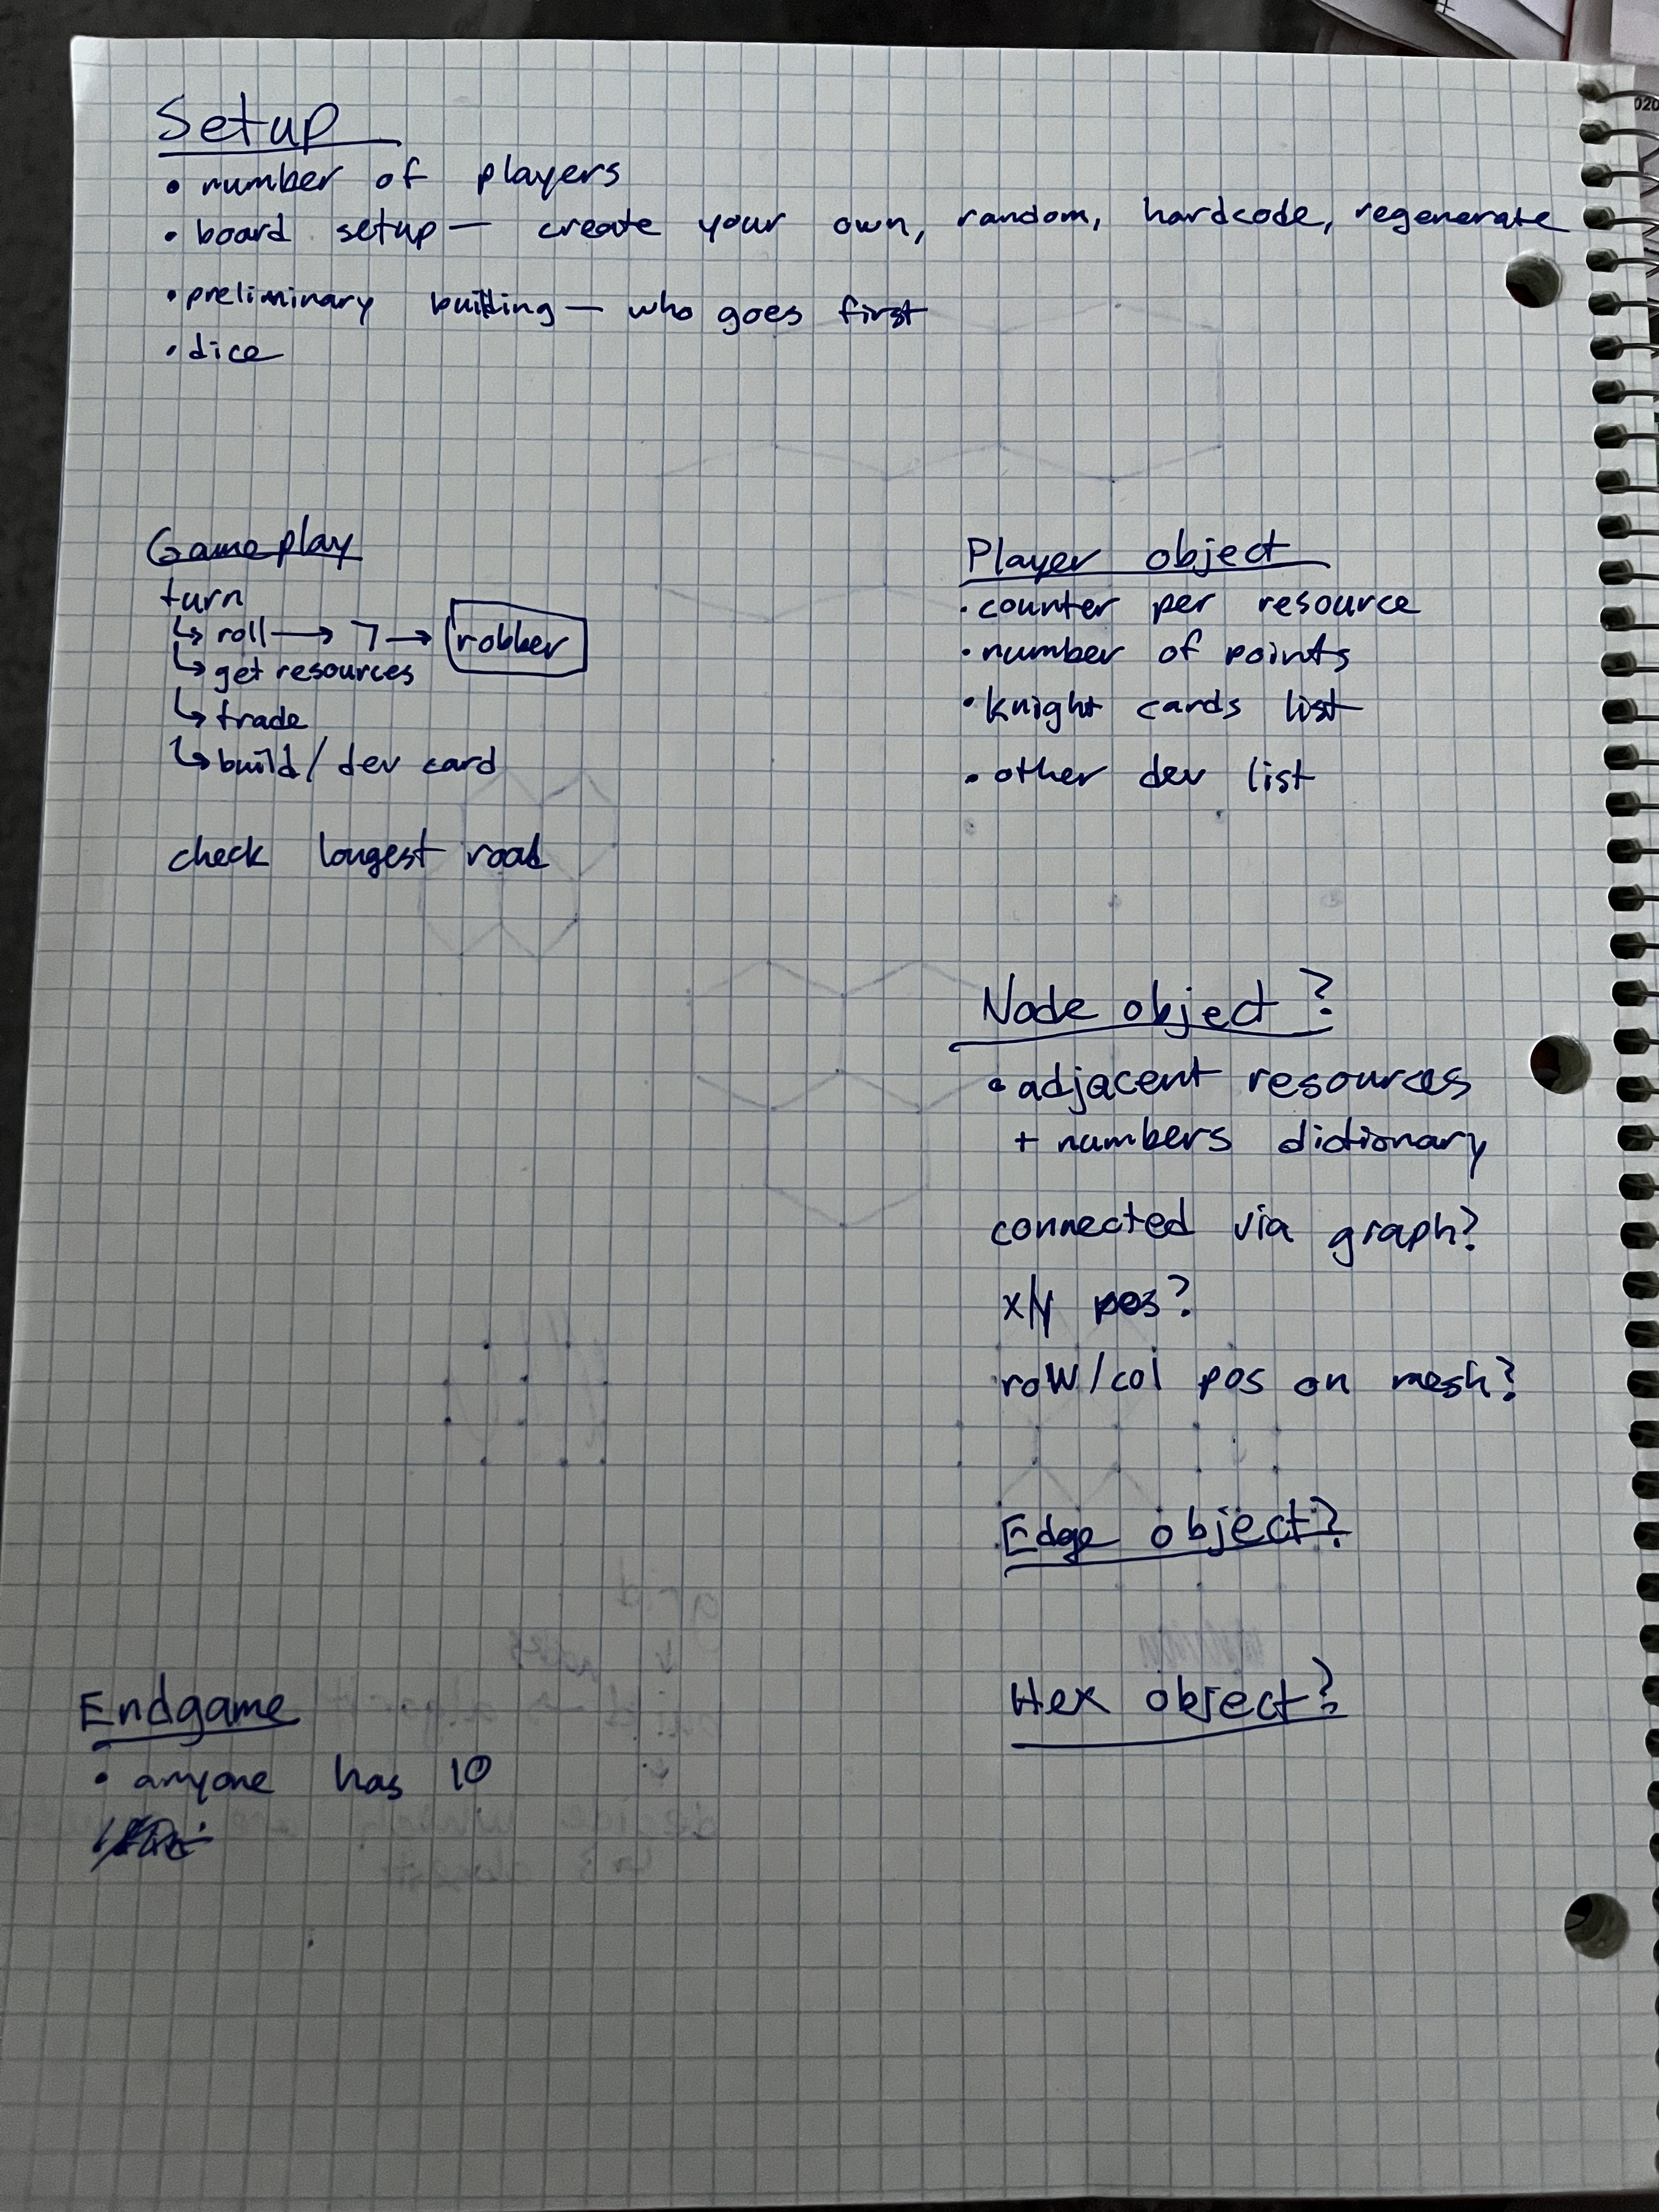 Setup
• number of players
• board setup — create your own, random, hardcode, regenerate
• preliminary building — who goes first
• dice
Gameplay
turn
↳ roll → 7 → robber
↳ get resources
↳ trade
↳ build / dev card
check longest road
Player object
• counter per resource
• number of points
• knight cards list
• other dev list
Node object?
• adjacent resources
+ numbers dictionary
connected via graph?
x/y pos?
row/col pos on mesh?
Edge object?
Hex object?
Endgame
• anyone has 10